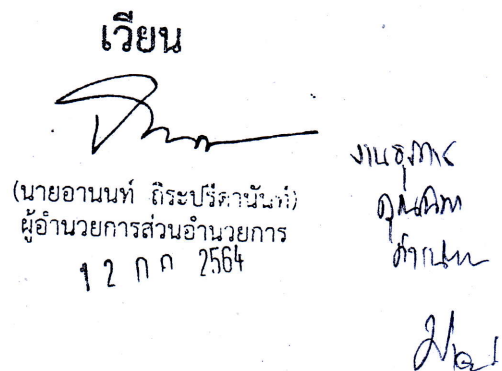 เวียน
(นายอานนท์ ถิระปรีดานันท์)
ผู้อำนวยการส่วนอำนวยการ
12 กค 2564
งานธุรการ